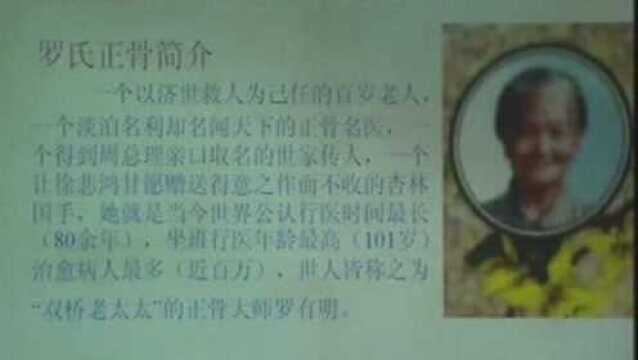 罗氏正骨简介
一个以济世救人为己任的百岁老人，
一个淡泊名利却名闻天下的正骨名医，一
个得到周总理亲口取名的世家传人，一个
让徐悲鸿甘愿赠送得意之作而不收的杏林
国手，她就是当今世界公认行医时间最长
（80余年），坐班行医年龄最高（101岁）
治愈病人最多（近百万），世人皆称之为
“双桥老太太”的正骨大师罗有明。